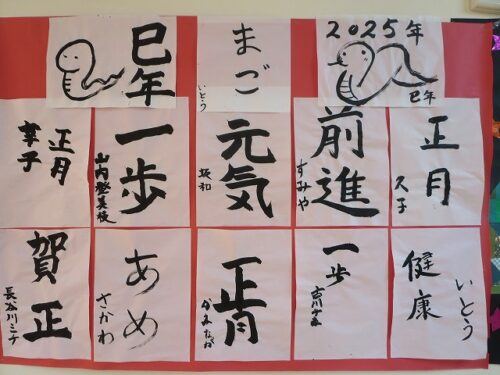 2025年
巳年
まご
いとう
巳年
正月
久子
前進
すみや
元気
坂和
一歩
正月
幸子
健康
いとう
一歩
正月
かみなが
あめ
さかわ
賀正
長谷川ミチ